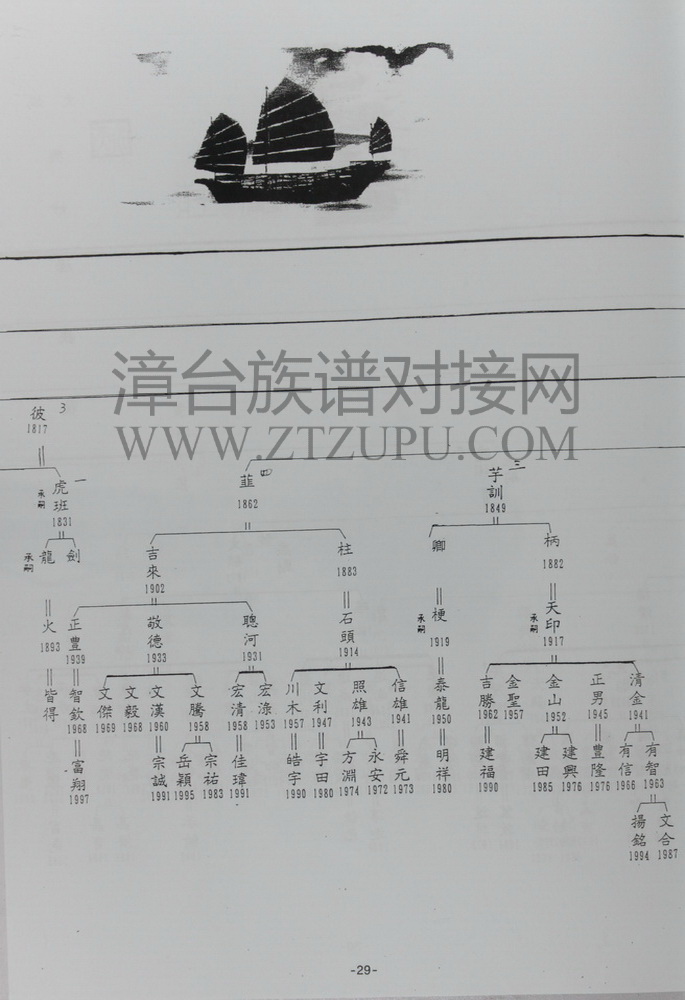 漳台族谱对接网
WWW.ZTZUPU.COM
彼 3
1817
虎班 一
承嗣
1831
龍 劍
承嗣
火
1893
皆得
韮 四
1862
吉來 柱
1902 1883
正豊 敬德 聰河 石頭
1939 1933 1931 1914
智欽 文傑 文毅 文漢 文騰 宏清 宏淥 川木 文利 照雄 信雄
1968 1969 1968 1960 1958 1958 1953 1957 1947 1943 1941
富翔 宗誠 岳穎 宗祐 佳瑋 皓宇 宇田 方淵 永安 舜元
1997 1991 1995 1983 1991 1990 1980 1974 1972 1973
芋訓 三
1849
卿 柄
1882
梗 天印
承嗣 承嗣
1919 1917
泰龍 吉勝 金聖 金山 正男 清金
1950 1962 1957 1952 1945 1941
明祥 建福 建田 建興 豊隆 有信 有智
1980 1990 1985 1976 1976 1966 1963
揚銘 文合
1994 1987
-29-